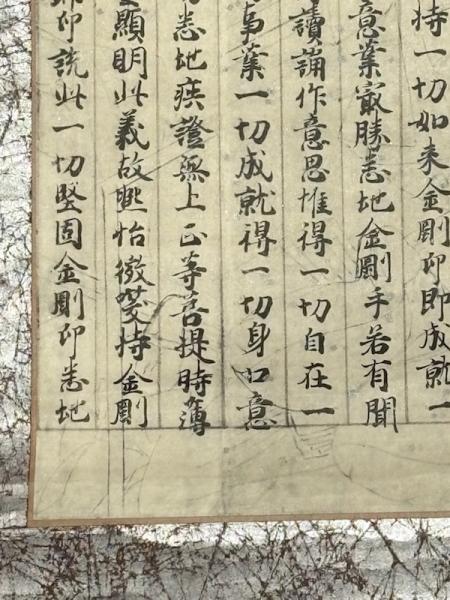 持一切如来金剛印即成就一
意業冣勝悉地金剛手若有聞
讀誦作意思惟得一切自在一
事業一切成就得一切身口意
悉地疾證無上正等菩提時薄
顯明此義故熈怡微笑持金剛
印說此一切堅固金剛印悉地